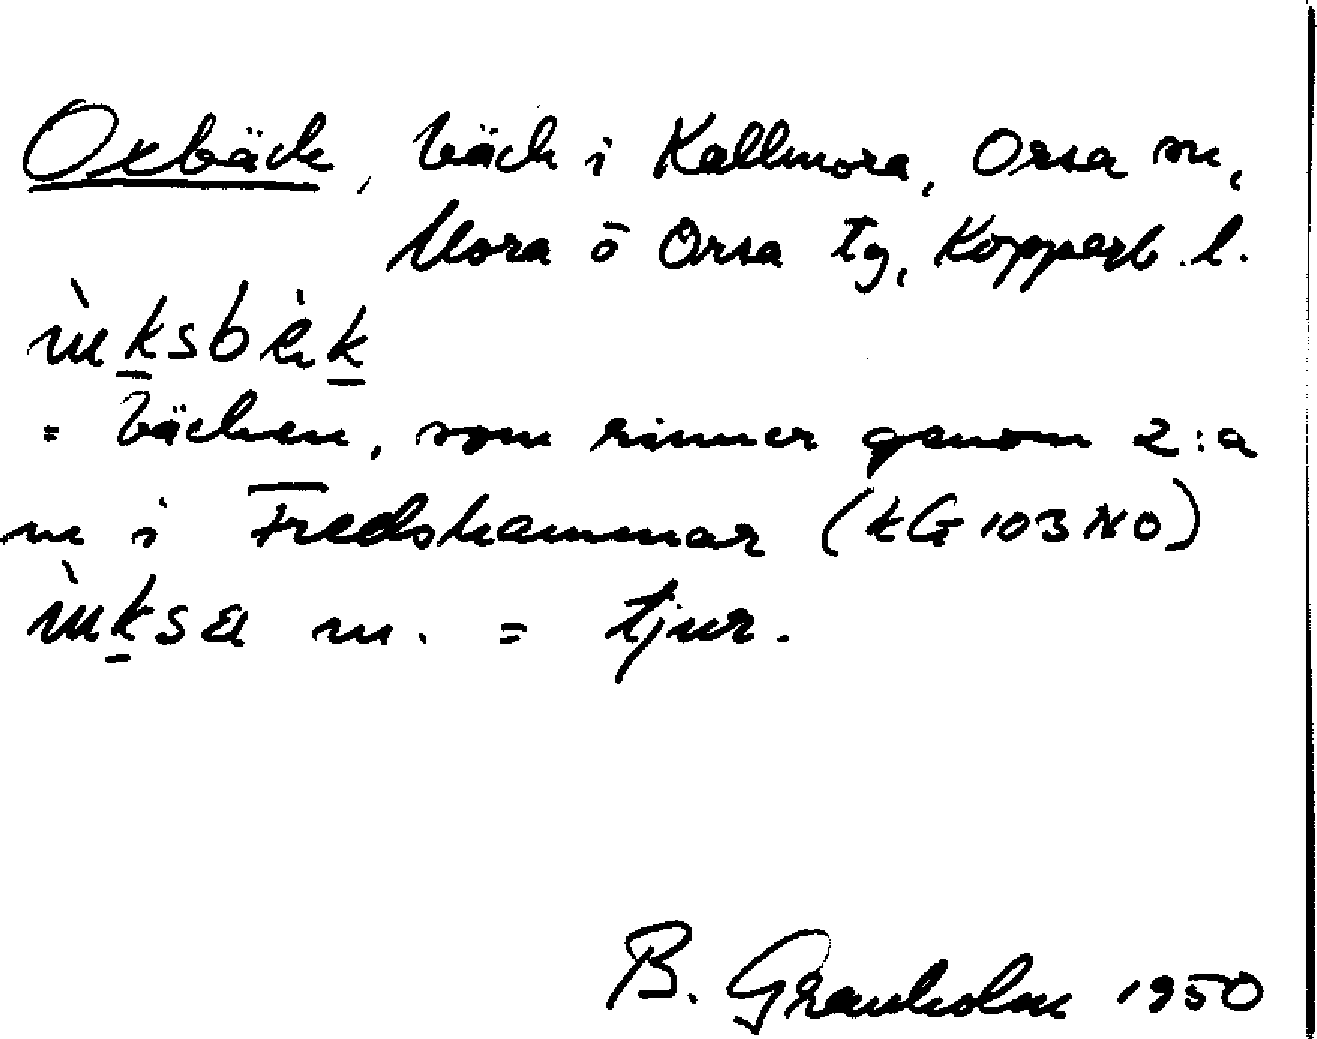 Oxbäck, bäck i Kallmora, Orsa sn,
Mora o Orsa tg, Kopparb. l.
ùksbàk
= bäcken, som rinner genom 2:a
n i Fredshammar (kG 103 NO)
ùksa m. = tjur.
B. Granholm 1950